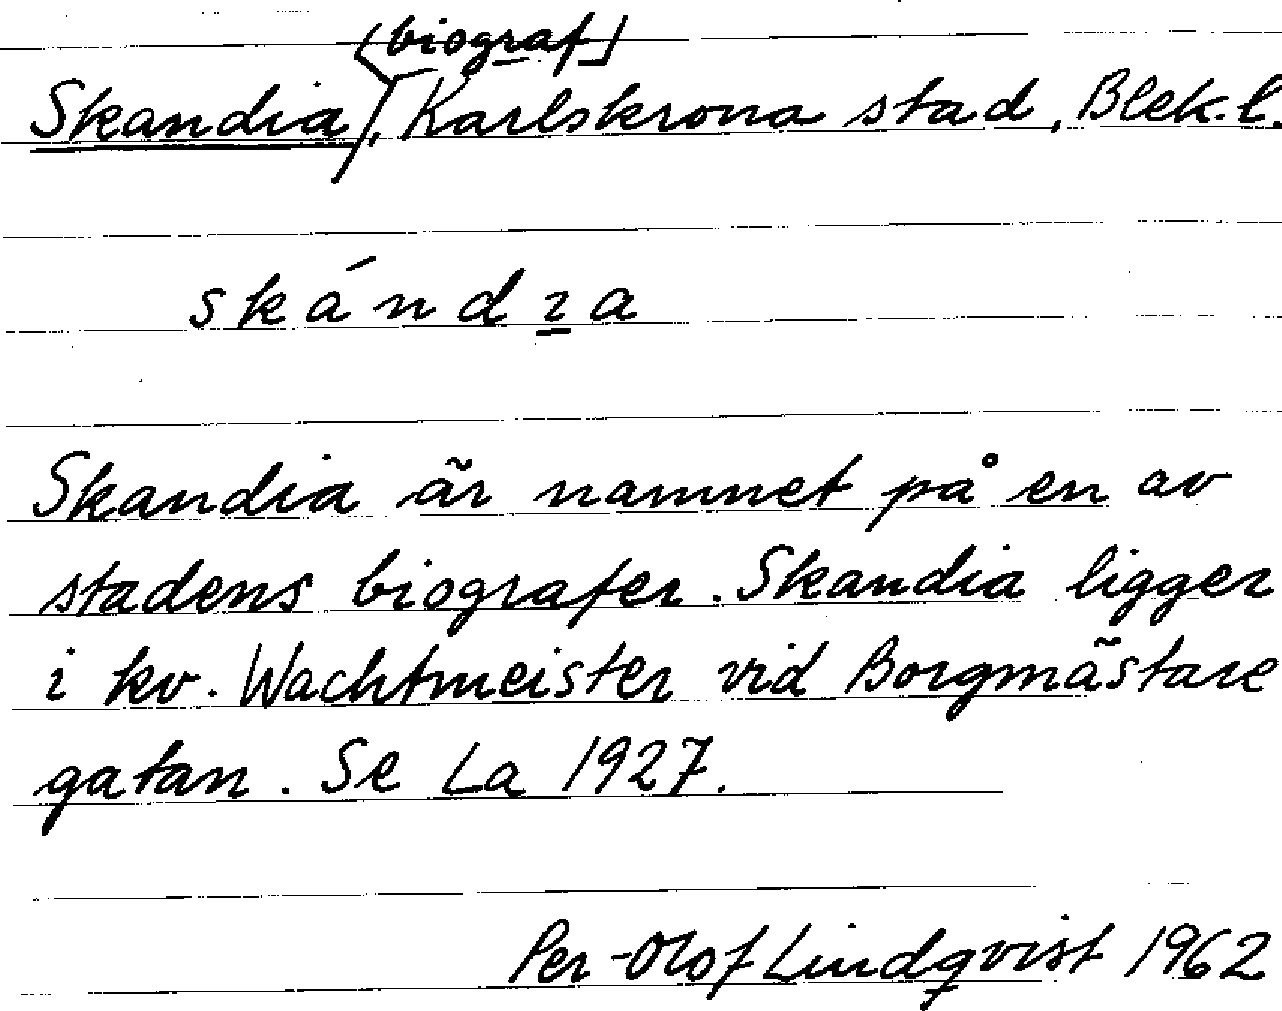 [biograf]
Skandia, Karlskrona stad, Blek. l.
skándıa
Skandia är namnet på en av
stadens biografer. Skandia ligger
i kv. Wachtmeister vid Borgmästare
gatan. Se La 1927.
Per-Olof Lindqvist 1962